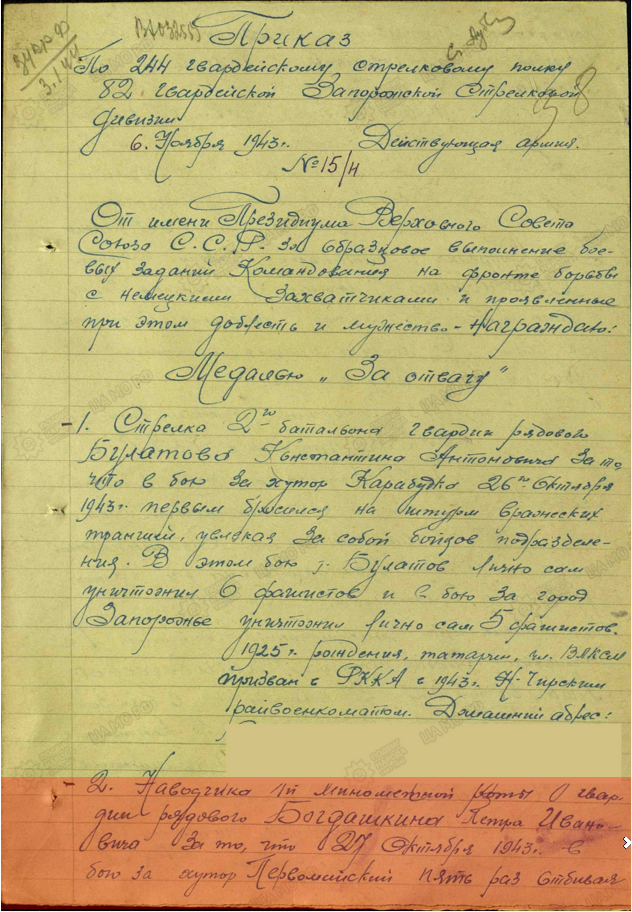 Приказ
По 244 гвардейскому стрелковому полку
82 гвардейской Запорожской Стрелковой
дивизии
6. Ноября 1943г. Действующая армия.
№15/н
От имени Президиума Верховного Совета
Союза С.С.Р. за образцовое выполнение бое-
вых заданий Командования на фронте борьбы
с немецкими захватчиками и проявленные
при этом доблесть и мужество - награждаю:
Медалью „За отвагу"
1. Стрелка 2го батальона гвардии рядового
Булатова Константина Антоновича За то,
что в бою за хутор Карабудка 26го Октября
1943г. первым бросился на штурм вражеских
траншей, увлекая За собой бойцов подразделе-
ния. В этом бою т. Булатов лично сам
уничтожил 6 фашистов и в бою За город
Запорожье уничтожил лично сам 5 фашистов.
1925г. рождения, татарин, чл. ВЛКСМ
призван в РККА в 1943г. Н-Чирским
райвоенкоматом. Домашний адрес:
2. Наводчика 1й минометной роты гвар-
дии рядового Богдашкина Петра Ивано-
вича За то, что 27 Октября 1943г. в
бою за хутор Первомайский пять раз отбивая